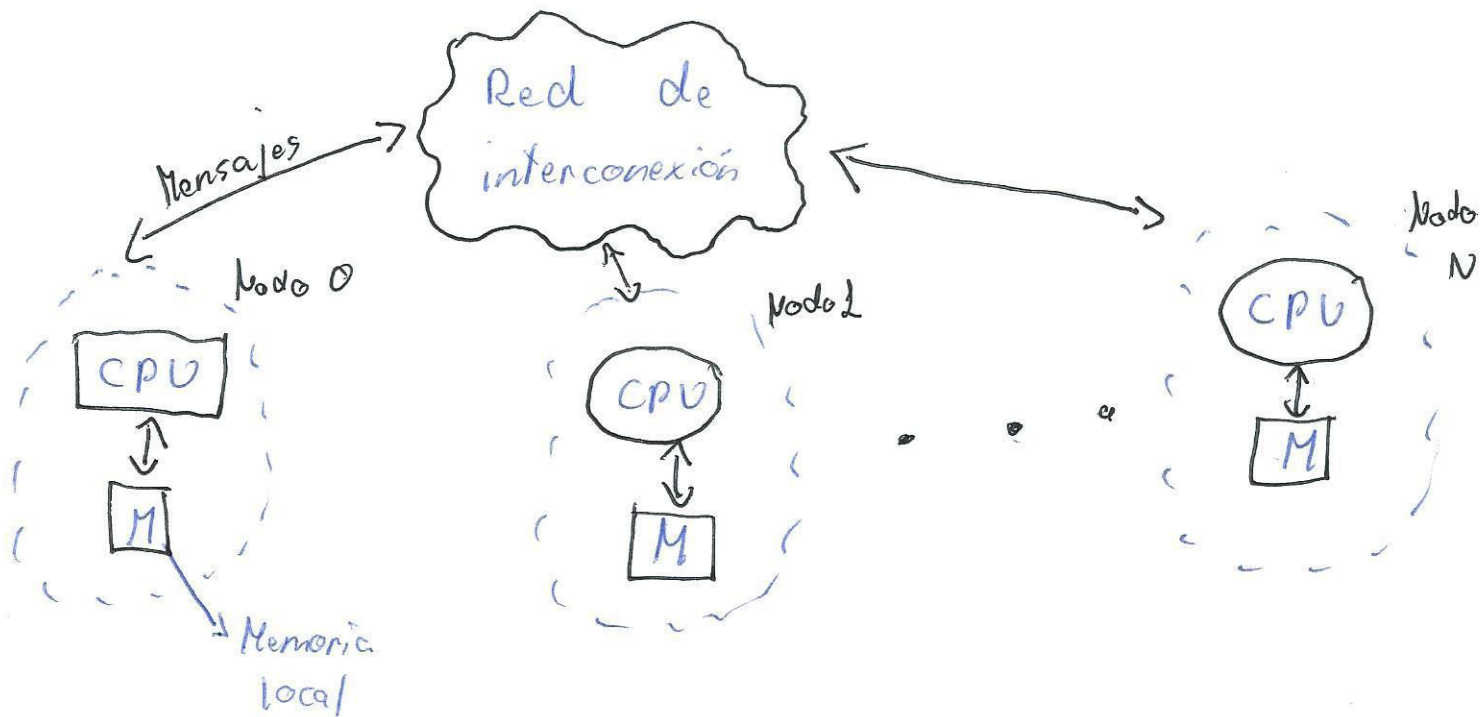 Red de
interconexión
Mensajes
Nodo 0
CPU
M
Memoria
local
Nodo 1
CPU
M
Nodo
N
CPU
M